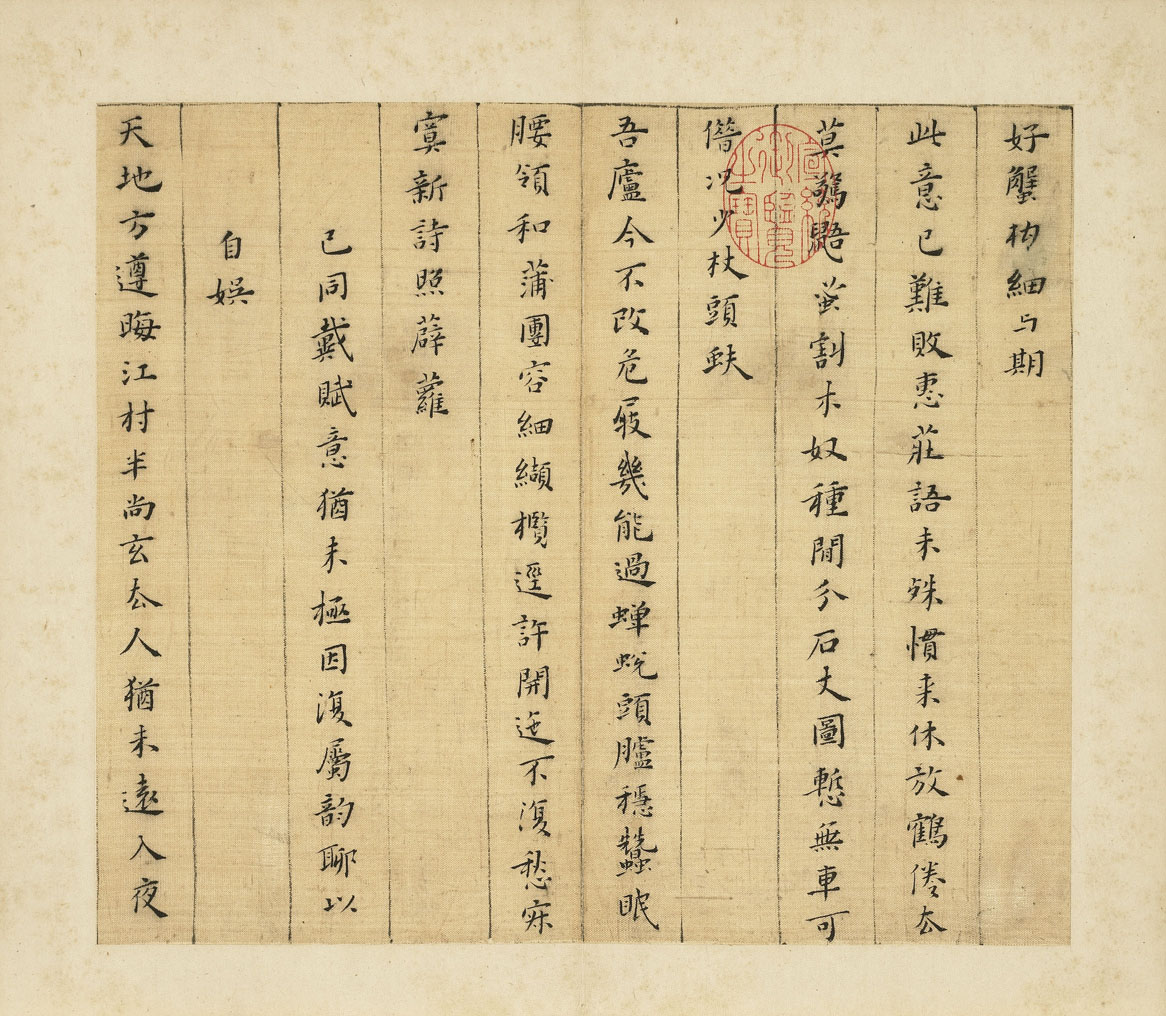 好蟹杓細与期
此意已難敗惠莊語未殊慣来休放鶴倦去
莫驚鼯蚩割木奴種閒分石丈圖慙無車可
僭况少杖頭蚨
吾廬今不改危屐幾能過蟬蛻頭臚穏蠶眠
腰領和蒲團容細纈欖逕許開迤不復愁寂
寞新詩照薜蘿
已同戴賦意猶未極因復屬韵聊以
自娯
天地方遵晦江村半尚玄去人猶未遠入夜